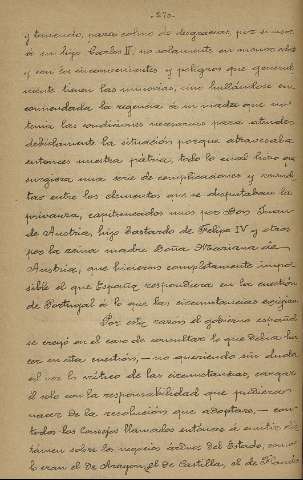 -270-
y teniendo, para colmo de desgracias, por sucesor
á su hijo Carlos II, no solamente en menor edad
y con los inconvenientes y peligros que general
mente tienen las minorías, sino hallándose en
comendada la regencia á su madre que no
tenía las condiciones necesarias para atender
debidamente la situación porque atravesaba
entonces nuestra pátria, todo lo cual hizo que
surgiera una serie de complicaciones y
tas entre los elementos que se disputaban la
privanza, capitaneados unos por Don Juan
de Austria, hijo bastardo de Felipe IV y otros
por la reina madre Doña Mariana de
Austria, que hicieron completamente impo
sible el que España respondiera en la cuestión
de Portugal á lo que las circunstancias exigían.
Por esta razón el gobierno español
se creyó en el caso de consultar lo que debía ha
cer en esta cuestión, — no queriendo sin duda
el por lo crítico de las circunstancias, cargar
él solo con la responsabilidad que pudieran
nacer de la resolución que adoptara, — con
todos los Consejos llamados entonces á emitir dic
támen sobre los negocios árduos del Estado, como
lo eran el de Aragon, el de Castilla, el de Flandes